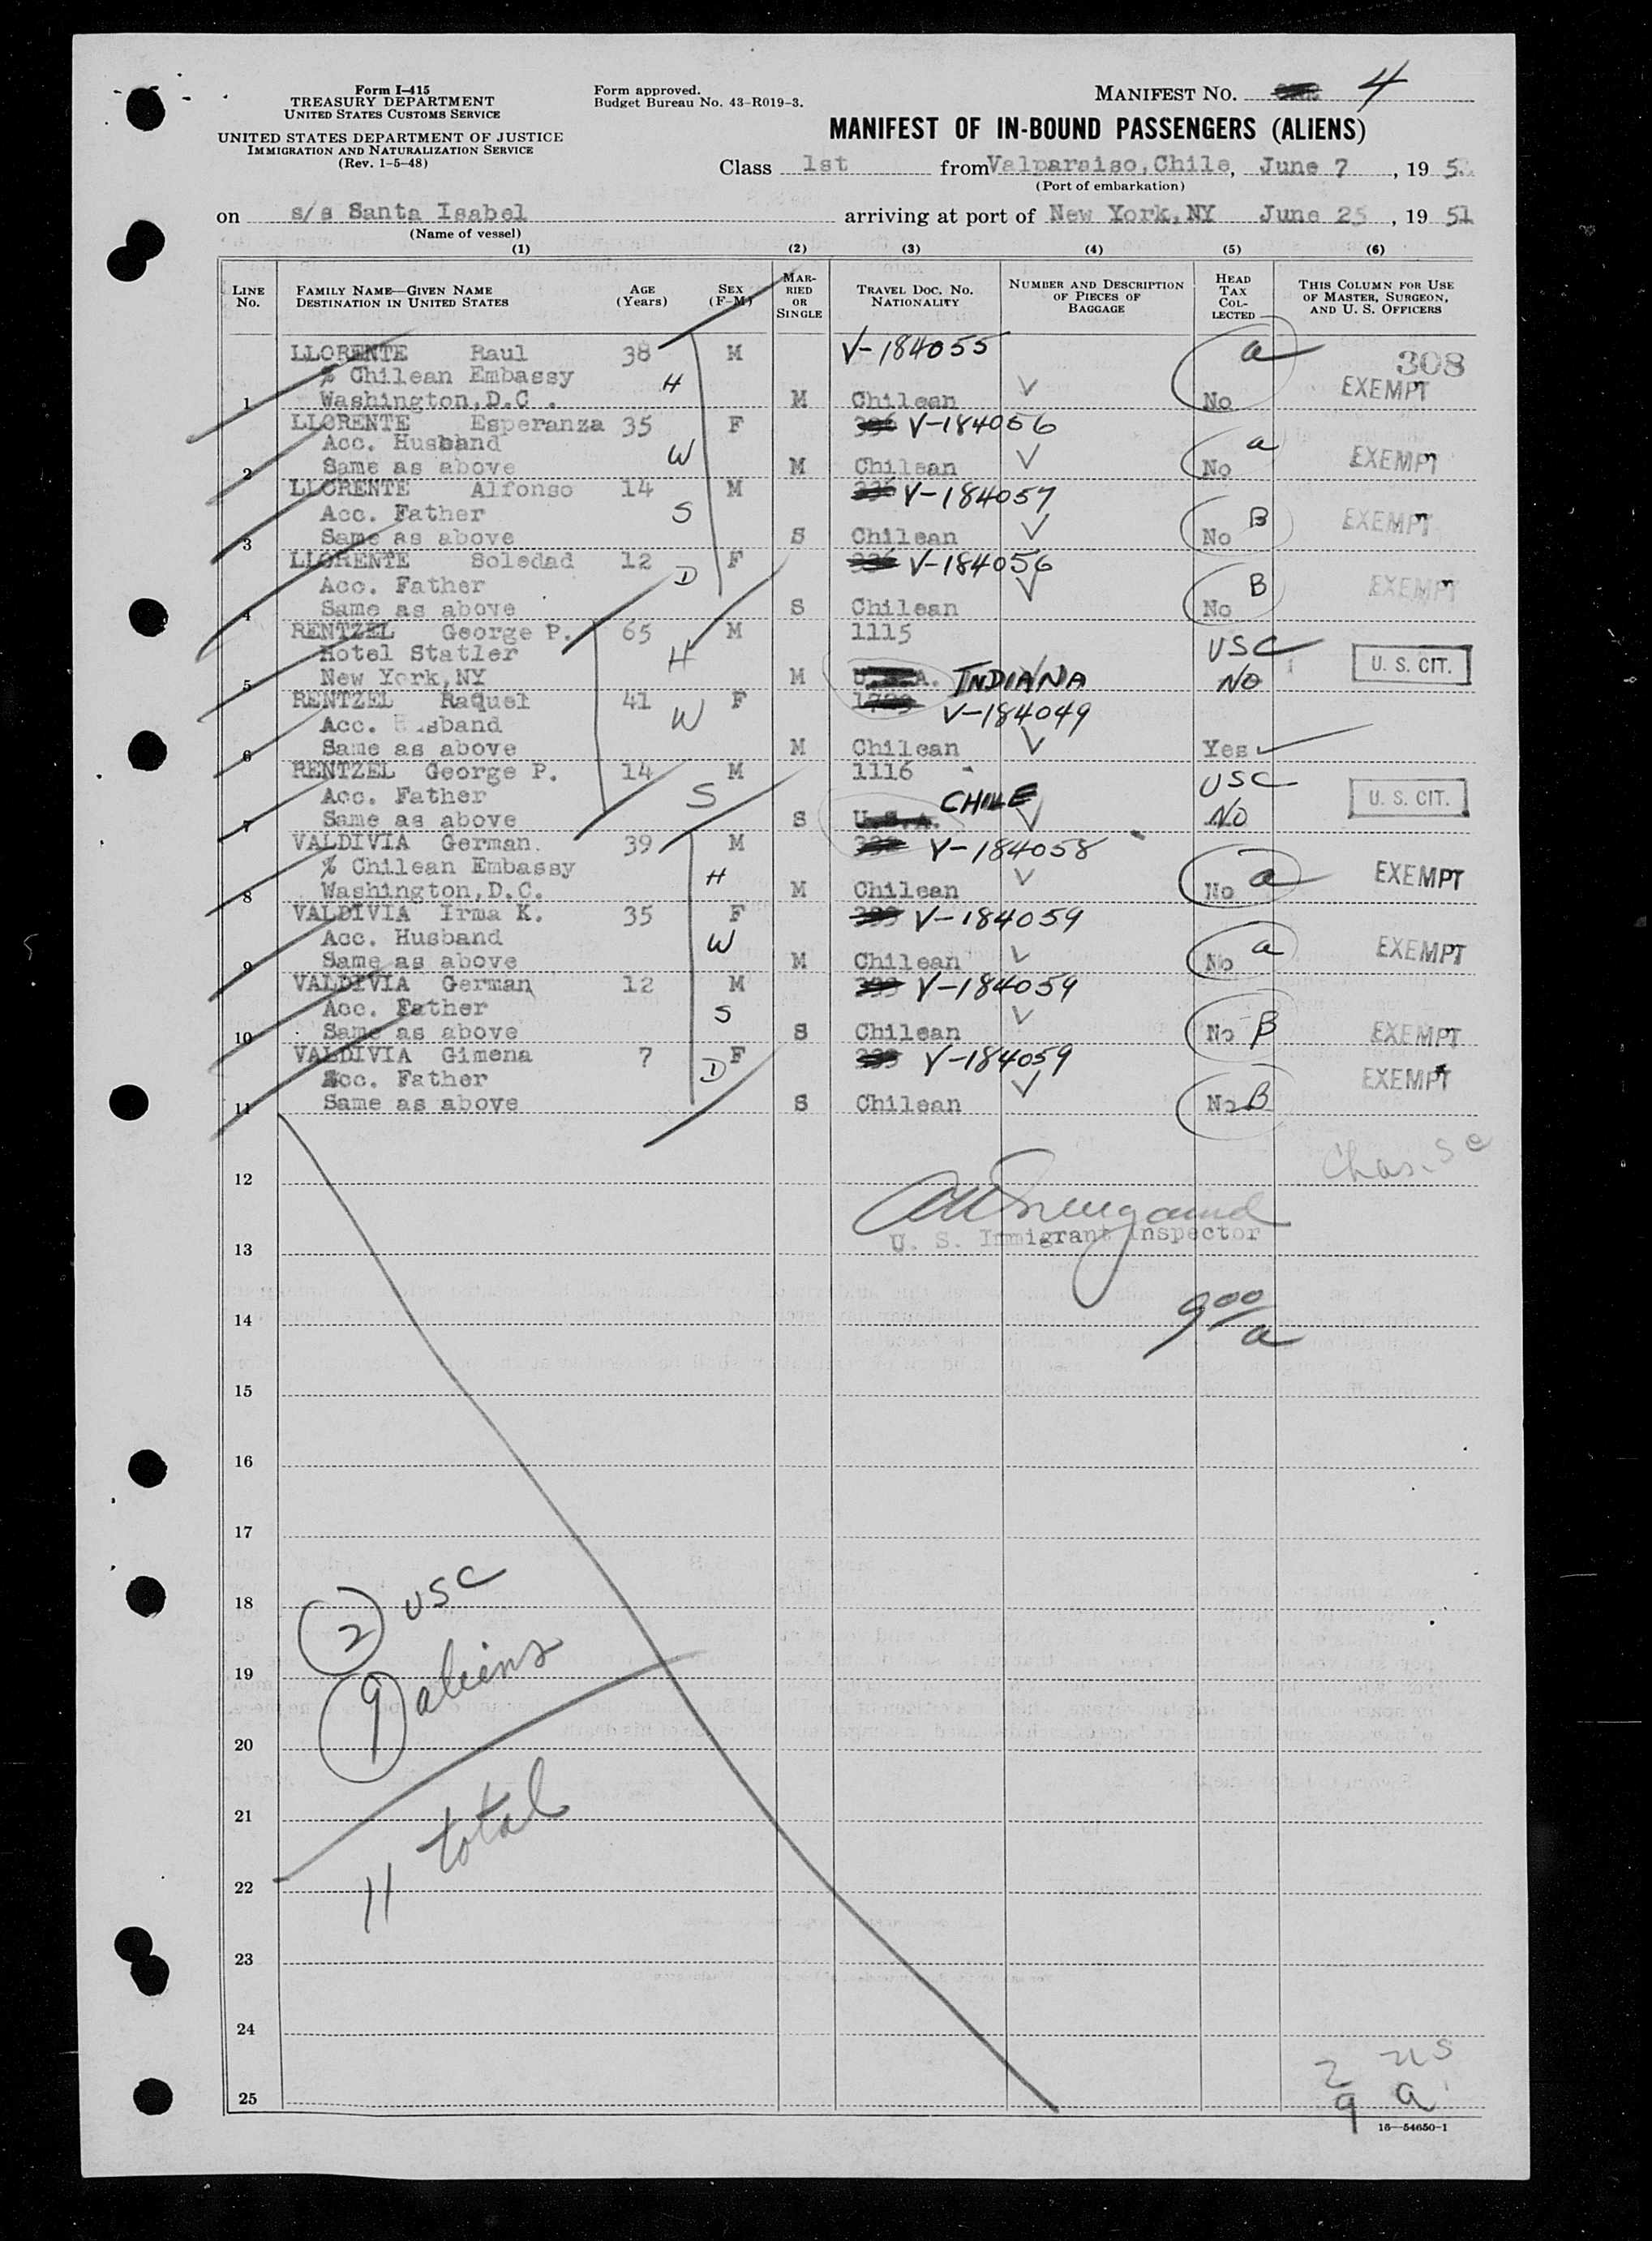 Form I-415
TREASURY DEPARTMENT
UNITED STATES CUSTOMS SERVICE
UNITED STATES DEPARTMENT OF JUSTICE
IMMIGRATION AND NATURALIZATION SERVICE
(Rev. 1-5-48)
Form approved.
Budget Bureau No. 43-R019-3.
MANIFEST NO. 4
MANIFEST OF IN-BOUND PASSENGERS (ALIENS)
Class 1st from Valparaiso, Chile, June 7, 195
(Port of embarkation)
on s/s Santa Isabel arriving at port of New York, NY June 25, 1951
(Name of vessel)
(1) (2) (3) (4) (5) (6)
LINE No. FAMILY NAME—GIVEN NAME DESTINATION IN UNITED STATES AGE (Years) SEX (F-M) MARRIED OR SINGLE TRAVEL DOC. NO. NATIONALITY NUMBER AND DESCRIPTION OF PIECES OF BAGGAGE HEAD TAX COLLECTED THIS COLUMN FOR USE OF MASTER, SURGEON, AND U. S. OFFICERS
LLORENTE Raul 38 M V-184055 a 308
% Chilean Embassy H EXEMPT
1 Washington,D.C . M Chilean No
LLORENTE Esperanza 35 F V-184056
Acc. Husband W a EXEMPT
2 Same as above M Chilean No
LLORENTE Alfonso 14 M V-184057
Acc. Father S B EXEMPT
3 Same as above S Chilean No
LLORENTE Soledad 12 F V-184056
Acc. Father D B EXEMPT
4 Same as above S Chilean No
RENTZEL George P. 65 M 1115
Hotel Statler H USC U. S. CIT.
5 New York,NY M U.S.A. INDIANA NO
RENTZEL Raquel 41 F V-184049
Acc. Husband W
6 Same as above M Chilean Yes
RENTZEL George P. 14 M 1116
Acc. Father S CHILE USC U. S. CIT.
7 Same as above S U.S.A. NO
VALDIVIA German. 39 M V-184058
% Chilean Embassy H a EXEMPT
8 Washington,D.C. M Chilean No
VALDIVIA Irma K. 35 F V-184059
Acc. Husband W a EXEMPT
9 Same as above M Chilean No
VALDIVIA German 12 M V-184059
Acc. Father S
10 Same as above S Chilean No B EXEMPT
VALDIVIA Gimena 7 F V-184059
Acc. Father D EXEMPT
11 Same as above S Chilean No B
12
U. S. Immigrant Inspector
13
9 00/a
14
15
16
17
18 2 USC
19 9 aliens
20
21 11 total
22
23
24
2 US
25 9 a
16—54650-1